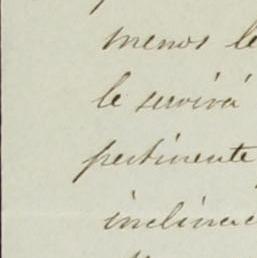 menos le
le servirá
pertinente
inclinac